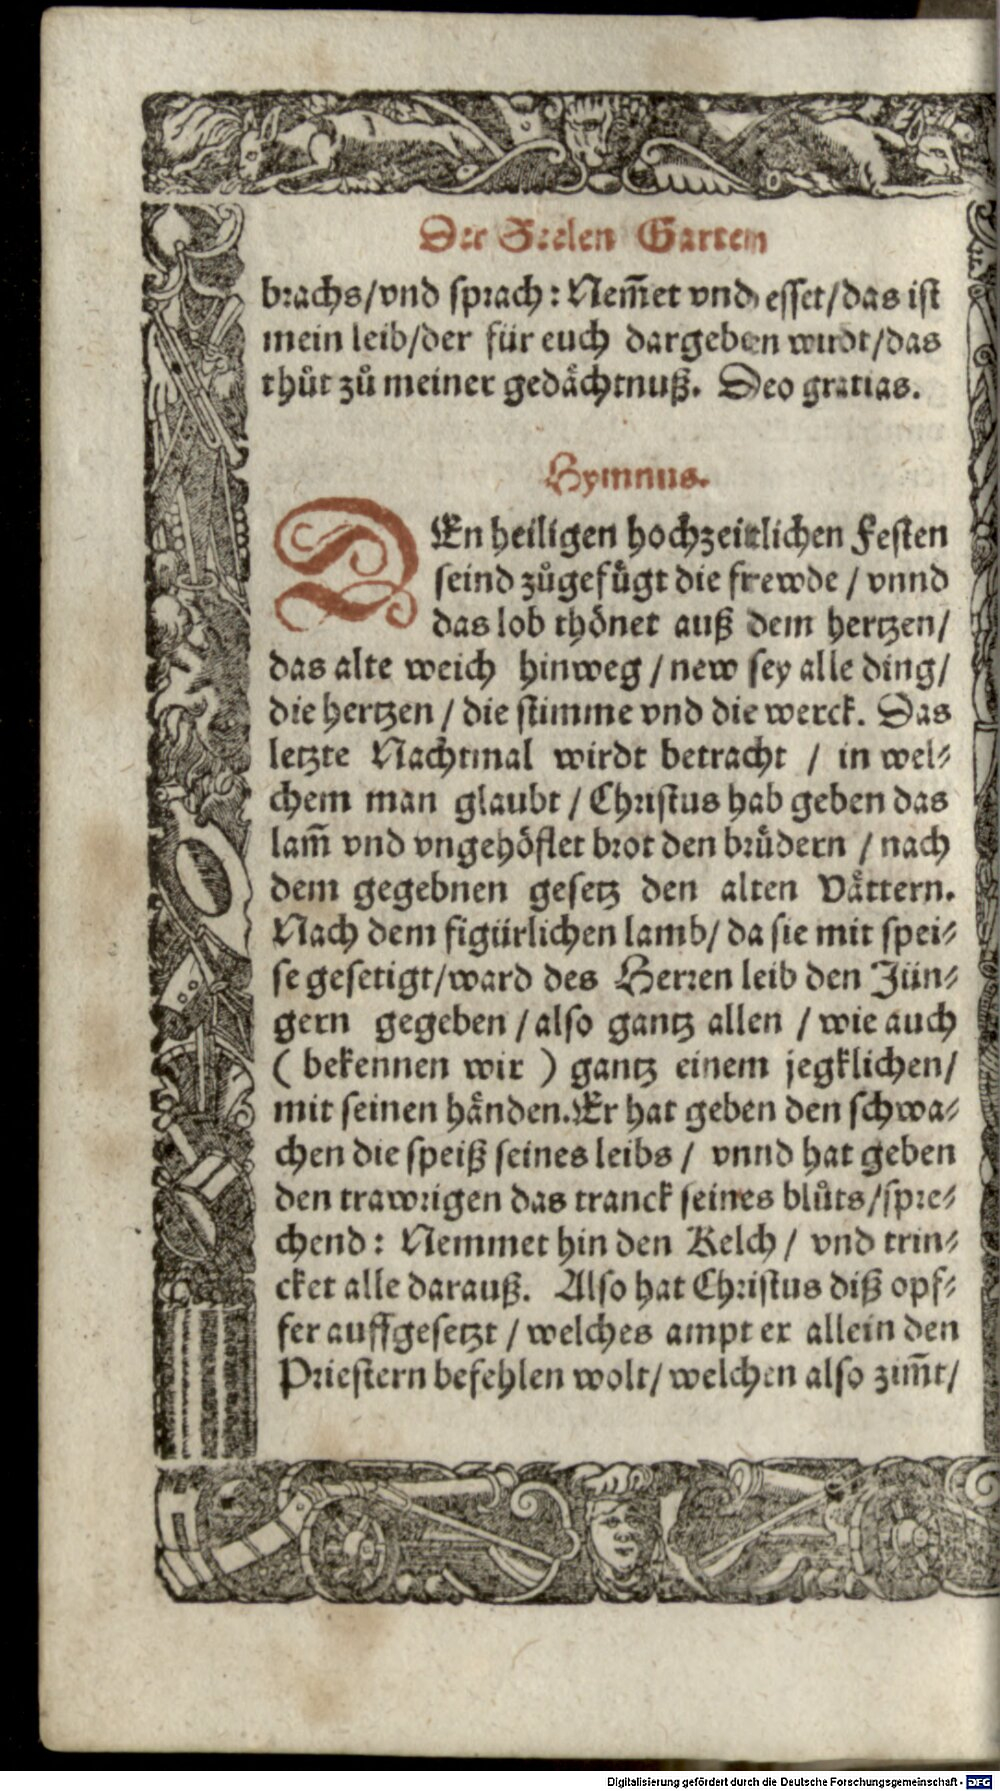 Der Seelen Garten
brachs/vnd sprach: Nem̃et vnd esset/das ist
mein leib/der für euch dargeben wirdt/das
thůt zů meiner gedächtnuß. Deo gratias.
Hymnus.
DEn heiligen hochzeitlichen Festen
seind zůgefůgt die frewde / vnnd
das lob thönet auß dem hertzen/
das alte weich hinweg / new sey alle ding/
die hertzen / die stimme vnd die werck. Das
letzte Nachtmal wirdt betracht / in wel⸗
chem man glaubt / Christus hab geben das
lam̃ vnd vngehöflet brot den brůdern / nach
dem gegebnen gesetz den alten Vättern.
Nach dem figürlichen lamb/ da sie mit spei⸗
se gesetigt/ward des Herren leib den Jün⸗
gern gegeben / also gantz allen / wie auch
( bekennen wir ) gantz einem jegklichen/
mit seinen händen. Er hat geben den schwa⸗
chen die speiß seines leibs / vnnd hat geben
den trawrigen das tranck seines blůts/spre⸗
chend: Nemmet hin den Kelch / vnd trin⸗
cket alle darauß. Also hat Christus diß opf⸗
fer auffgesetzt / welches ampt er allein den
Priestern befehlen wolt/ welchen also zim̃t/
Digitalisierung gefördert durch die Deutsche Forschungsgemeinschaft - DFG